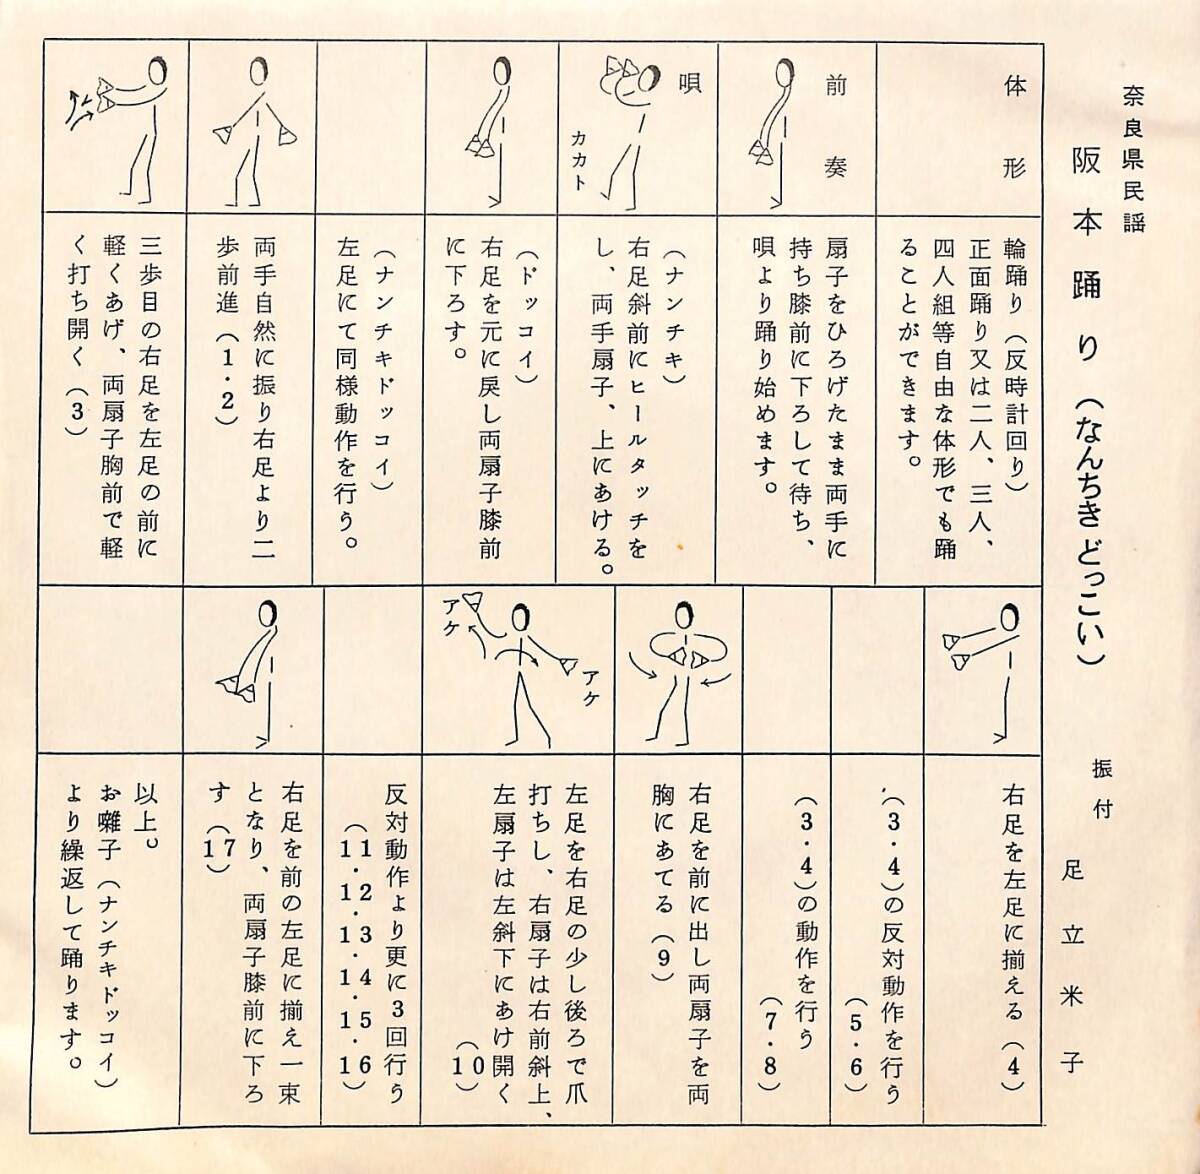 奈良県民謡
阪本踊り（なんちきどっこい）
振付　足立米子
体形
輪踊り（反時計回り）
正面踊り又は二人、三人、
四人組等自由な体形でも踊
ることができます。
前奏
扇子をひろげたまま両手に
持ち膝前に下ろして待ち、
唄より踊り始めます。
唄
カカト
（ナンチキ）
右足斜前にヒールタッチを
し、両手扇子、上にあける。
（ドッコイ）
右足を元に戻し両扇子膝前
に下ろす。
（ナンチキドッコイ）
左足にて同様動作を行う。
両手自然に振り右足より二
歩前進（1・2）
三歩目の右足を左足の前に
軽くあげ、両扇子胸前で軽
く打ち開く（3）
右足を左足に揃える（4）
（3・4）の反対動作を行う
（5・6）
（3・4）の動作を行う
（7・8）
右足を前に出し両扇子を両
胸にあてる（9）
アケ
アケ
左足を右足の少し後ろで爪
打ちし、右扇子は右前斜上、
左扇子は左斜下にあけ開く
（10）
反対動作より更に3回行う
（11・12・13・14・15・16）
右足を前の左足に揃え一束
となり、両扇子膝前に下ろ
す（17）
以上。
お囃子（ナンチキドッコイ）
より繰返して踊ります。